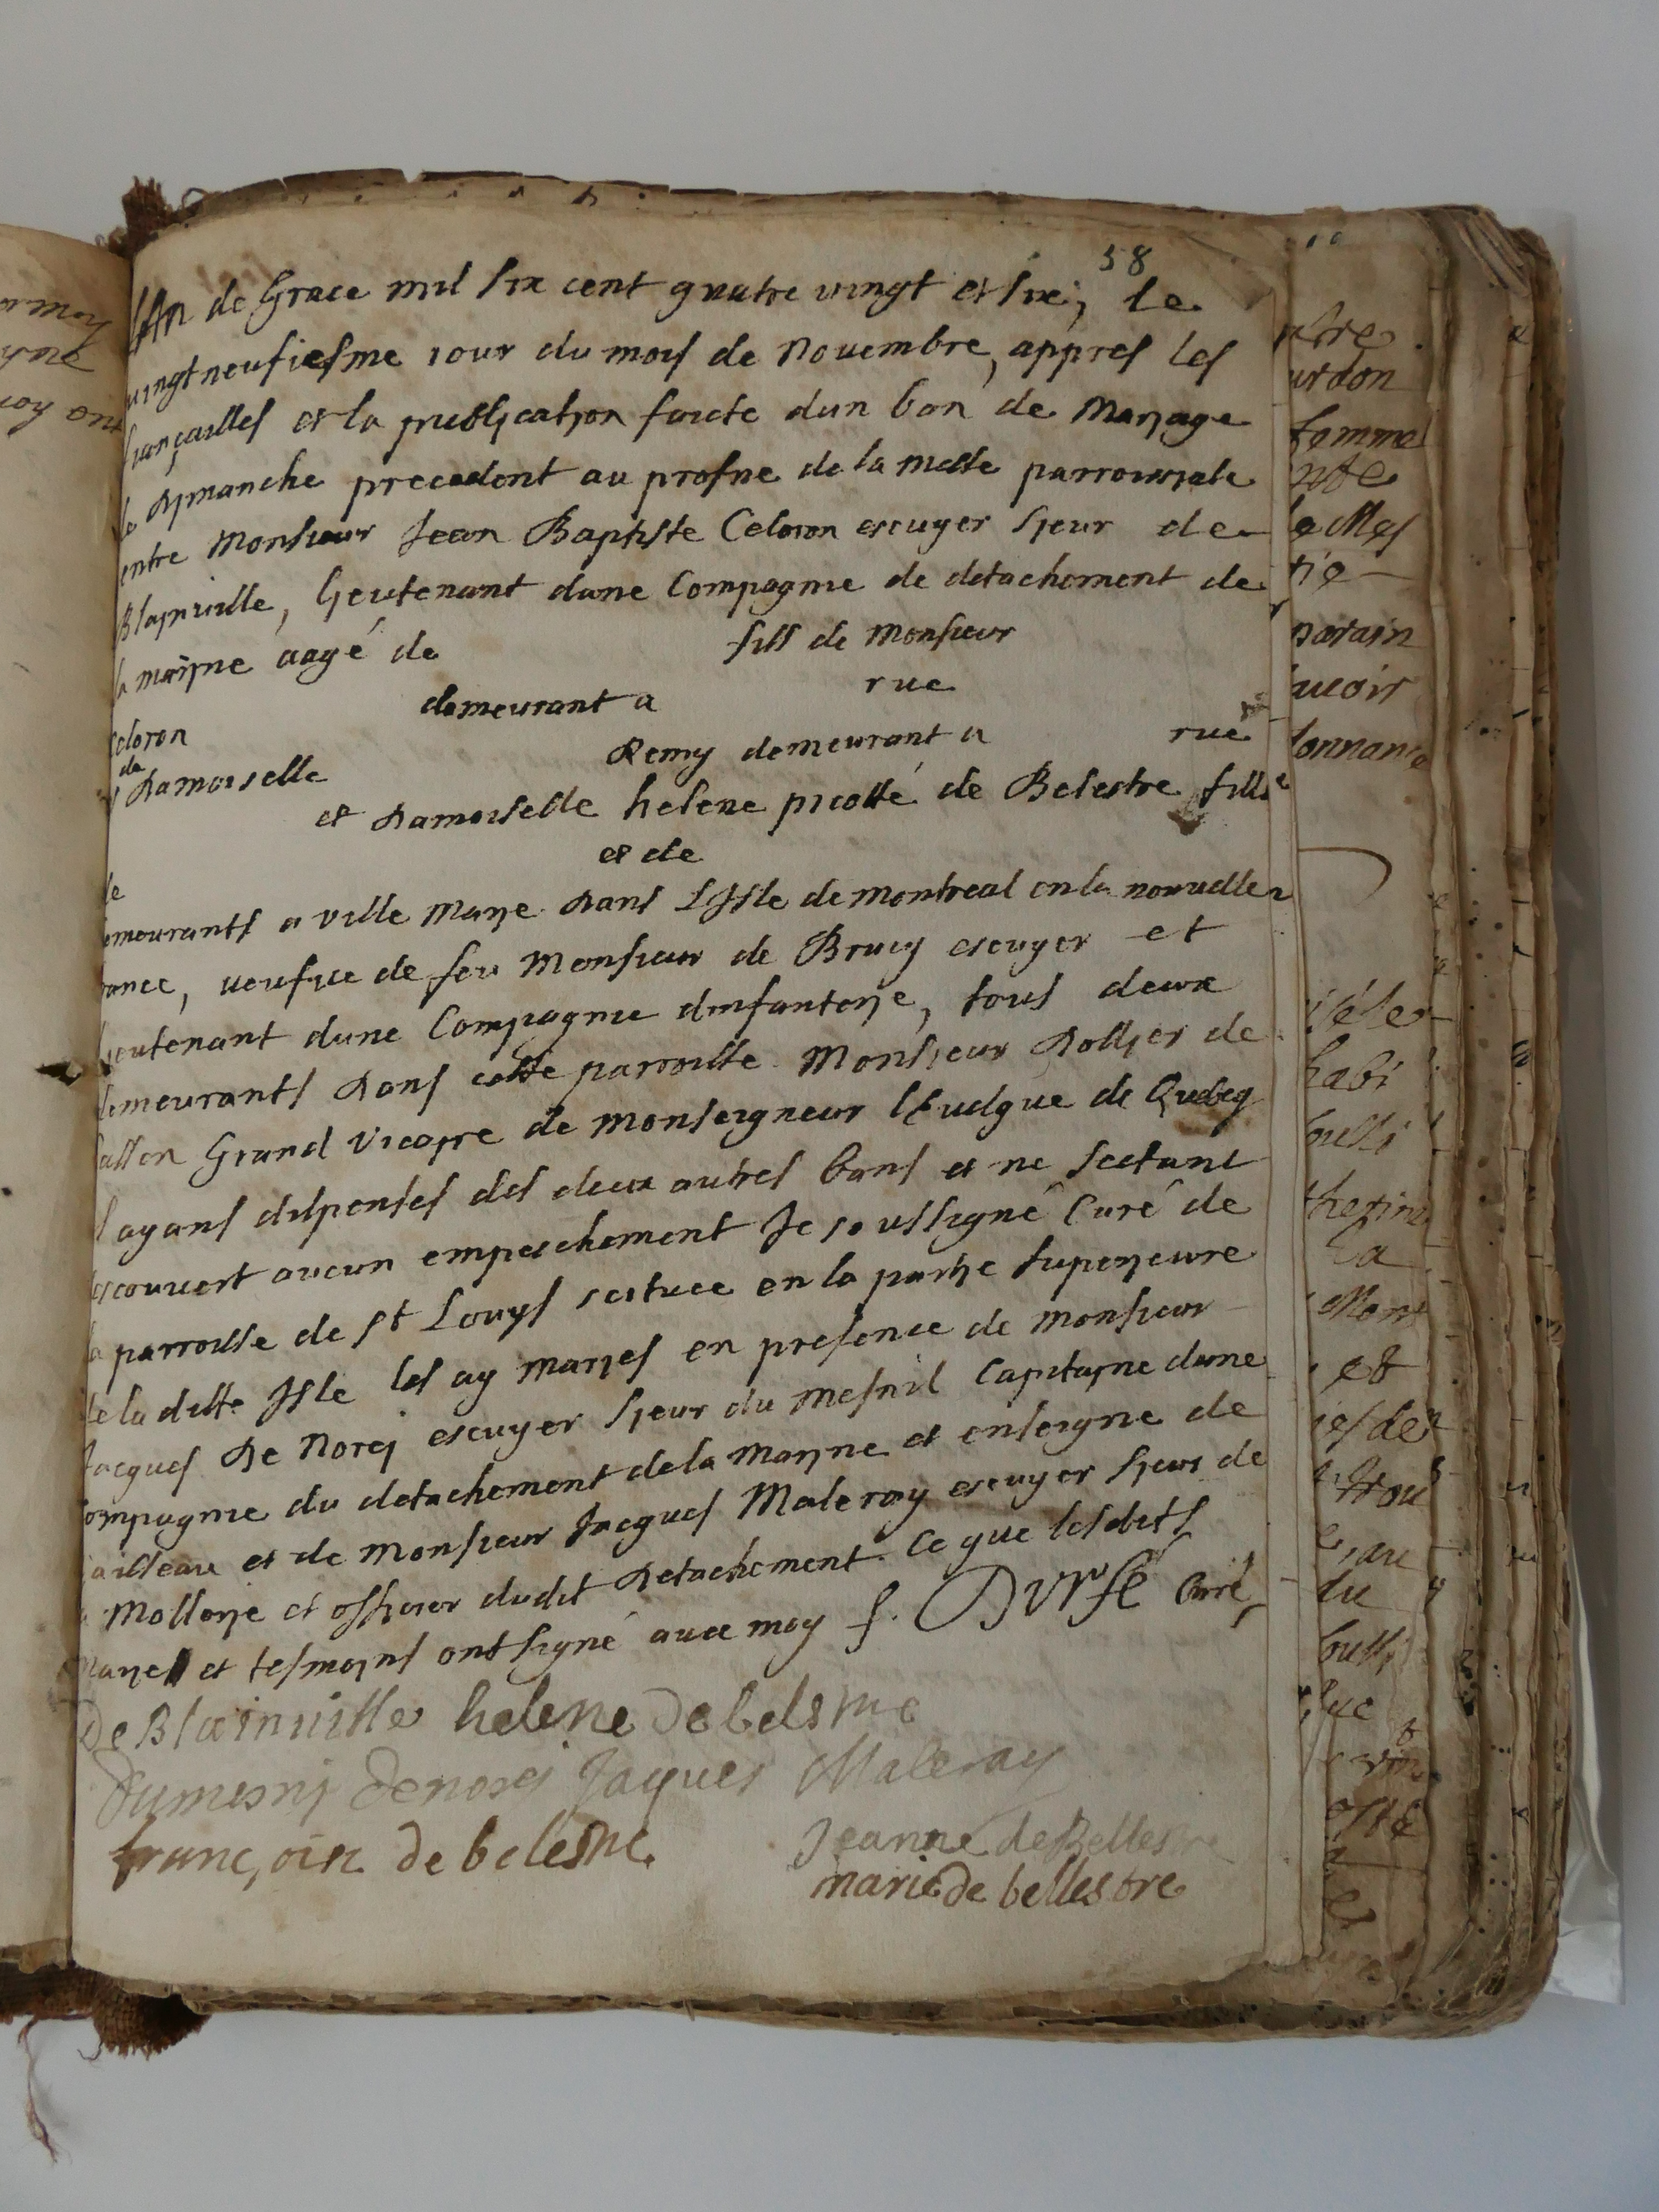 58
l'An de Grace mil six cent quatre vingt et six, le
vingt neufiesme iour du mois de Nouembre, appres les
fiançailles et la publication faicte dun ban de Mariage
le dymanche precedent au prosne de la messe parroissiale
entre Monsieur Jean Baptiste Celoron escuyer sieur de
Blainuille, lieutenant dune Compagnie de detachement de
la marine aagé de fils de Monsieur
Celoron demeurant a rue
et de Damoiselle Remy demeurant a rue
et Damoiselle helene picotté de Belestre fille
de et de
demeurants a ville Marie dans L'Isle de montreal en la nouuelle
france, veufue de feu Monsieur de Brucy escuyer et
lieutenant dune Compagnie dinfanterie, tous deux
demeurants dans cette parroisse. Monsieur Dollier de
Casson Grand Vicaire de Monseigneur l'Euesque de Quebeq
l ayans dispenses des deux autres bans et ne sestant
descouuert aucun empeschement Je soussigné Curé de
la parroisse de st Louys scituee en la partie superieure
de la ditte Isle les ay mariés en presence de Monsieur
Jacques De Norei escuyer sieur du Mesnil Capitaine dune
Compagnie du detachement de la Marine et enseigne de
vaisseau et de Monsieur Jacques Maleray escuyer sieur de
la Mollerie et officier dudit detachement. Ce que lesdits
Mariés et tesmoins ont signé auec moy f. Durfé Curé
De Blainuille helene de belestre
Dumesni denorei Jaques Maleray
françoise de belestre Jeanne de Bellestre
marie de bellestre